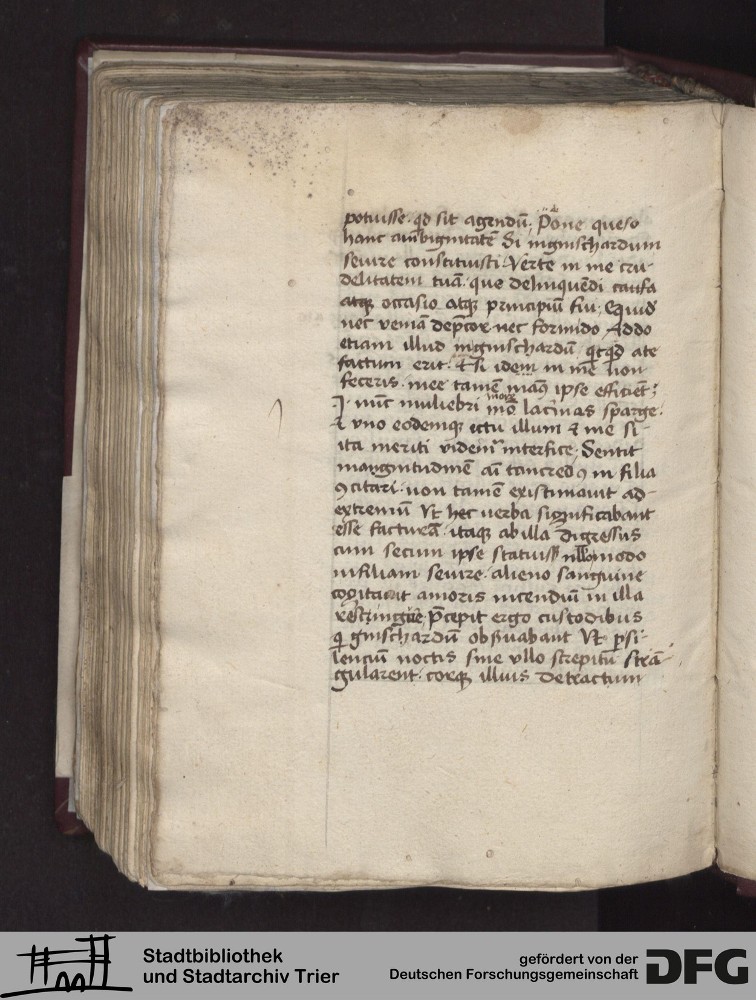 potuisse. qd sit agendū. Pone queso
hanc ambiguitatē Si inguischardum
seuire constituisti Verte in me cru-
delitatem tuā. que delinquēdi causa
atq; occasio atq; principiū fui. Equid
nec veniā dep̄cor nec formido Addo
etiam illud inguischardū qcqd a te
factum erit. Et si idem in me non
feceris. mee tamē man9 ipse efficiēt;
I. nūc muliebri more lacrimas sparge.
& vno eodemq; ictu illum & me si-
ita meriti videmur interfice. Sentit
magnitudinē ai tancred9 in filia
9citari. non tamē existimauit ad-
extremū Vt hec verba significabant
esse facturā. itaq; ab illa digressus
cum secum ipse statuiss nullomodo
in filiam seuire. alieno sanguine
cogitauit amoris incendiū in illa
restringuē p̄cepit ergo custodibus
qi guischardū obseruabant Vt p si-
lencium noctis sine vllo strepitu strā-
gularent. corq; illius detractum
Stadtbibliothek
und Stadtarchiv Trier
gefördert von der
Deutschen Forschungsgemeinschaft
DFG